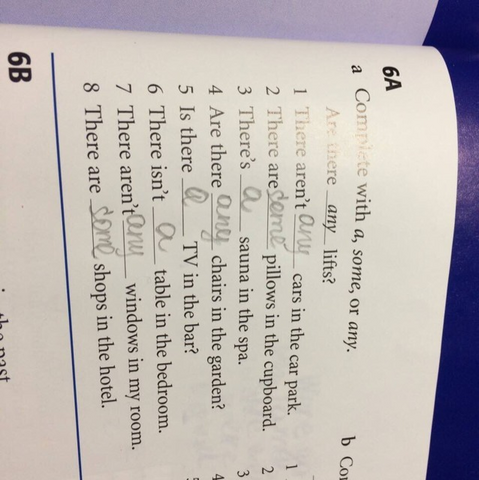 6A
a Complete with a, some, or any.
Are there any lifts?
1 There aren't any cars in the car park.
2 There are some pillows in the cupboard.
3 There's a sauna in the spa.
4 Are there any chairs in the garden?
5 Is there a TV in the bar?
6 There isn't a table in the bedroom.
7 There aren't any windows in my room.
8 There are some shops in the hotel.
b
1
2
3
4
6B
the past